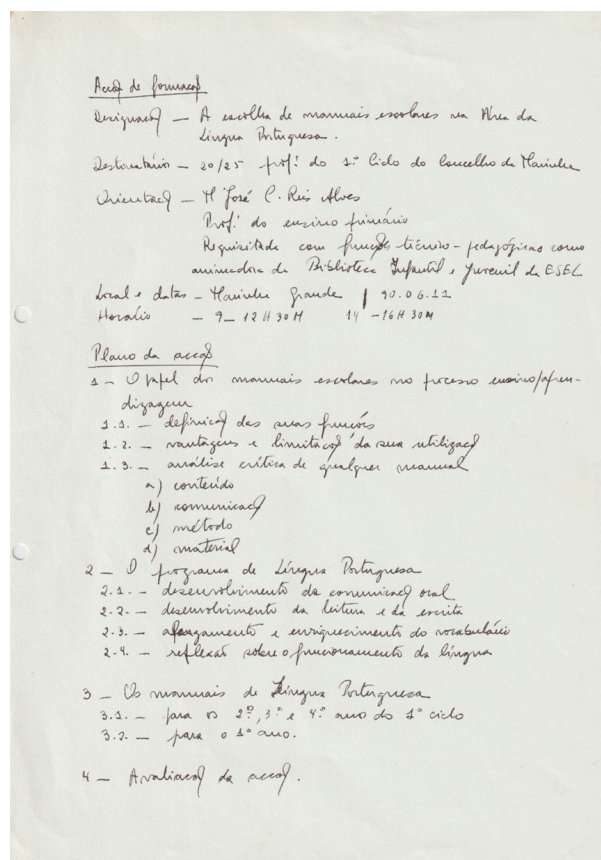 Acção de formação
Designação — A escolha de manuais escolares na Área da
Língua Portuguesa.
Destinatários — 20/25 prof.s do 1.º Ciclo do Concelho da Marinha
Orientação — Mª José C. Reis Alves
Prof.ª do ensino primário
Requisitada com funções técnico-pedagógicas como
animadora da Biblioteca Infantil e Juvenil da ESEL
Local e datas — Marinha Grande | 90.06.11
Horário — 9 — 12H30M 14 — 16H30M
Plano da acção
1 — O papel dos manuais escolares no processo ensino/apren-
dizagem
1.1. — definição das suas funções
1.2. — vantagens e limitações da sua utilização
1.3. — análise crítica de qualquer manual
a) conteúdo
b) comunicação
c) método
d) material
2 — O programa de Língua Portuguesa
2.1. — desenvolvimento da comunicação oral
2.2. — desenvolvimento da leitura e da escrita
2.3. — alargamento e enriquecimento do vocabulário
2.4. — reflexão sobre o funcionamento da língua
3 — Os manuais de Língua Portuguesa
3.1. — para os 2.º, 3.º e 4.º anos do 1º ciclo
3.2. — para o 1º ano.
4 — Avaliação da acção.